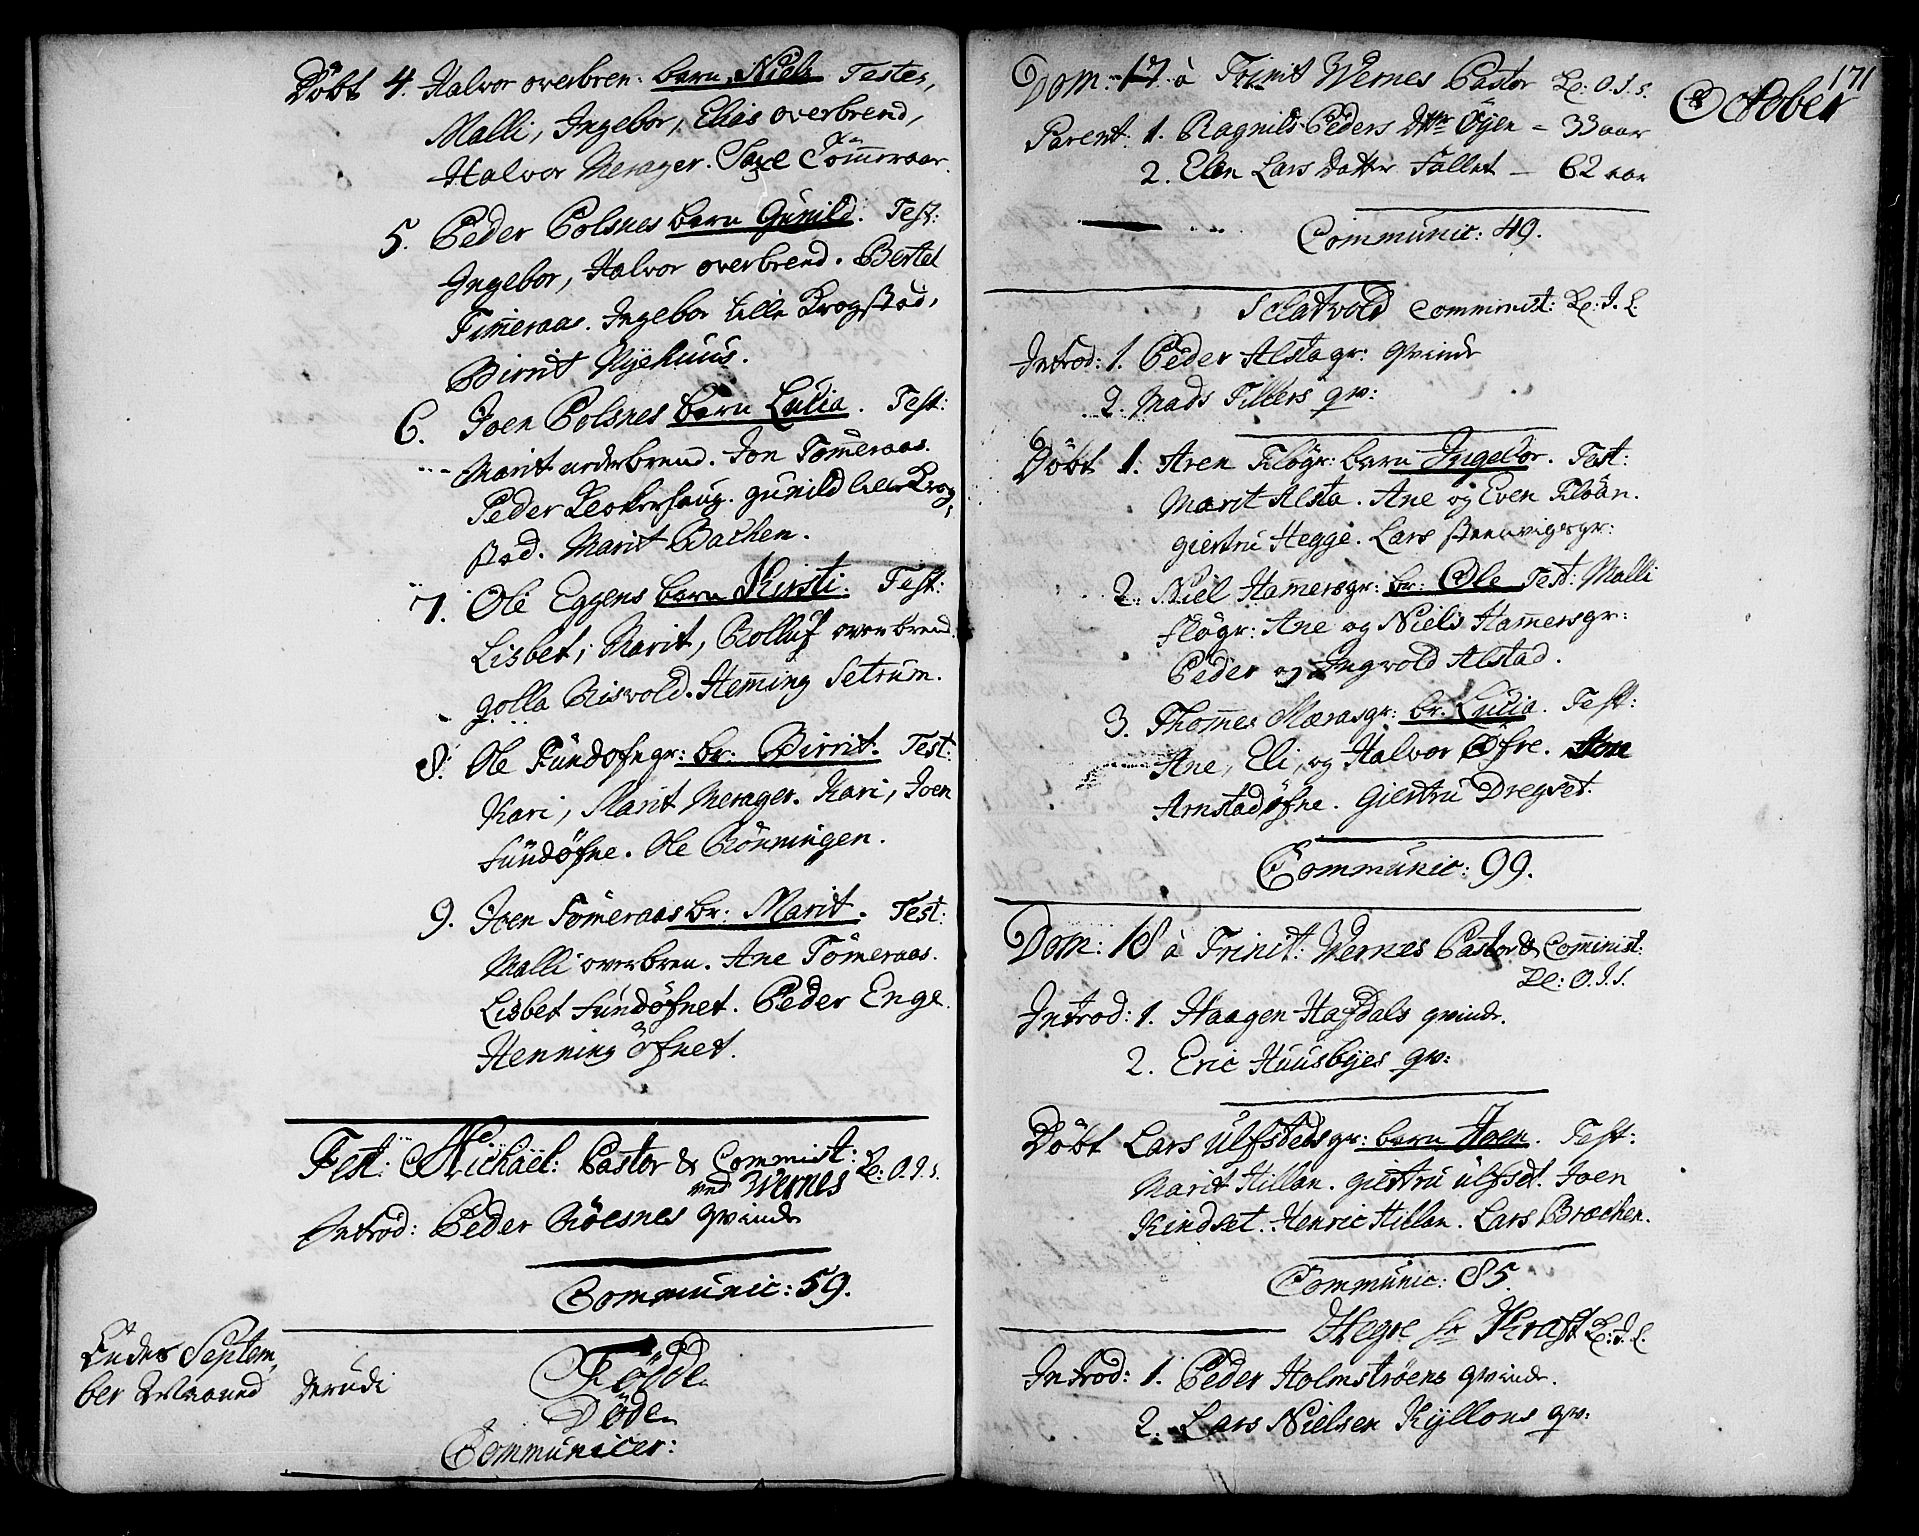 Döbt 4. Halvor overbren: barn Niels. Testes,
Malli, Ingebor, Elias overbrend,
Halvor Merager. Tömeraas.
5. Peder Polsnes barn Gunild. Test:
Ingebor, Halvor overbrend. Bertel
Timeraas. Ingebor Lille Krogstad,
Birrit Nÿehuus.
6. Joen Polsnes barn Lucia. Test:
Marit nederbrend. Jon Tömeraas.
Peder Leokerhaug. gunild lille Krog,
stad. Marit Bachen.
7. Ole Eggens barn Kirsti. Test:
Lisbet, Marit, Rolluf overbrend.
golla Risvold. Heming Setrum.
8. Ole Fundöfngr: br: Birrit. Test:
Kari, Marit Merager. Kari, Joen
fundöfne. Ole Rönningen.
9. Joen Tömeraas br: Marit. Test:
Malli overbren. Ane Tömeraas.
Lisbet Fundöfnet. Peder Enge.
Henning öfnet.
Fest: Michaël: Pastor & Commist: Le: O.I.s.
ved Wernes
Introd: Peder Röesnes qvinde
Communic: 59.
Endes Septem,
ber Maaned derudi
Födde
Döde
Communicer:
171
October
Dom: 17. à Trinit Wernes Pastor Le: O.I.s.
Parent: 1. Ragnild Peders Dttr Öÿen – 33 aar
2. Elen Lars Datter Fallet – 62 aar
Communic: 49.
Sclatvold Comminist: Le: I. L
Introd: 1. Peder Alstagr: qvinde
2. Mads Tillers qv:
Döbt 1. Aren Flögr: barn Ingebor. Test:
Marit Alsta. Ane og Even Flöan.
giertru Hegge. Lars steenvigsgr:
2. Niel Hamersgr: br: Ole Test: Malli
Flögr: Ane og Niels Hamersgr:
Peder og Ingvold Alstad.
3. Thomes Mærasgr: br: Lucia. Test:
Ane, Eli, og Halvor Øfre. Ane
Arnstadöfne. giertru Dregset.
Communic: 99.
Dom: 18 à Trinit: Wernes Pastor & Cominist:
Le: O.I.s.
Introd: 1. Haagen Hafdals qvinde.
2. Eric Huusbÿes qv:
Döbt Lars Ulfstedsgr: barn Joen. Test:
Marit Hillan. giertru ulfset. Joen
Kindset. Henric Hillan. Lars Brachen.
Communic: 85.
Hegre hr Kraft Le: I. L.
Introd: 1. Peder Holmströens qvinde.
2. Lars Nielsen Kÿllons qv: